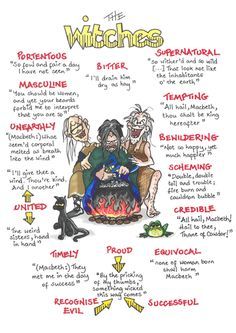 THE
Witches
PORTENTOUS
"So foul and fair a day
I have not seen"
BITTER
"I'll drain him
dry as hay"
SUPERNATURAL
"So wither'd and so wild
[...] That look not like
the inhabitants
o' the earth"
MASCULINE
"You should be women,
and yet your beards
forbid me to interpret
that you are so"
TEMPTING
"All hail, Macbeth,
thou shalt be king
hereafter"
UNEARTHLY
(Macbeth:) "What
seem'd corporal
melted as breath
into the wind"
BEWILDERING
"Not so happy, yet
much happier"
"I'll give thee a
wind. Thou'rt kind.
And I another"
SCHEMING
"Double, double
toil and trouble;
fire burn and
cauldron bubble"
UNITED
"The weird
sisters, hand
in hand"
CREDIBLE
"All hail, Macbeth!
hail to thee,
Thane of Cawdor!"
TIMELY
"(Macbeth:) They
met me in the day
of success"
PROUD
"By the pricking
of my thumbs,
something wicked
this way comes"
EQUIVOCAL
"none of woman born
shall harm
Macbeth"
RECOGNISE
EVIL
SUCCESSFUL